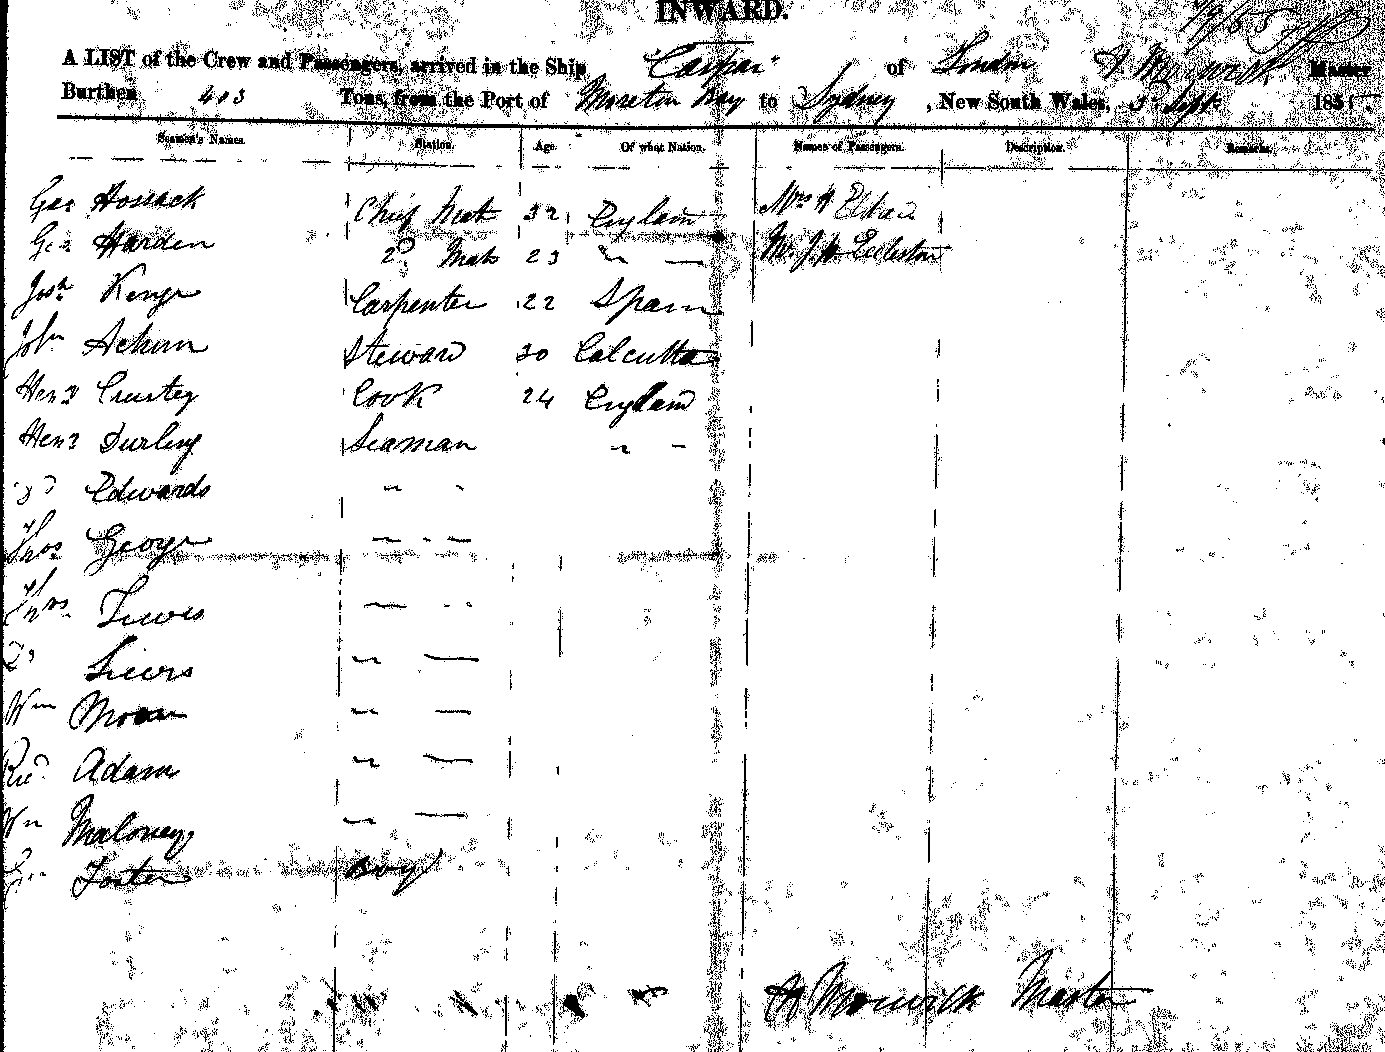 INWARD.
A LIST of the Crew and Passengers, arrived in the Ship "Caspar" of London Master
Burthen 403 Tons, from the Port of Moreton Bay to Sydney, New South Wales, 3 Sept 185
Seamen's Names. Station. Age. Of what Nation. Names of Passengers. Description. Remarks.
Geo Hossack Chief Mate 32 England Mrs
Geo Harden 2D Mate 23 " — Mr J. H Eccleston
Josh Kenge Carpenter 22 Spain
John Steward 30 Calcutta
Heny Crustey Cook 24 England
Heny Durling Seaman " "
Edwards " "
Thos George " "
Thos Lewis " "
Do Liewis " —
Wm Moran " —
Ricd Adam " —
Wm Maloney " —
Geo Foster Boy
Master